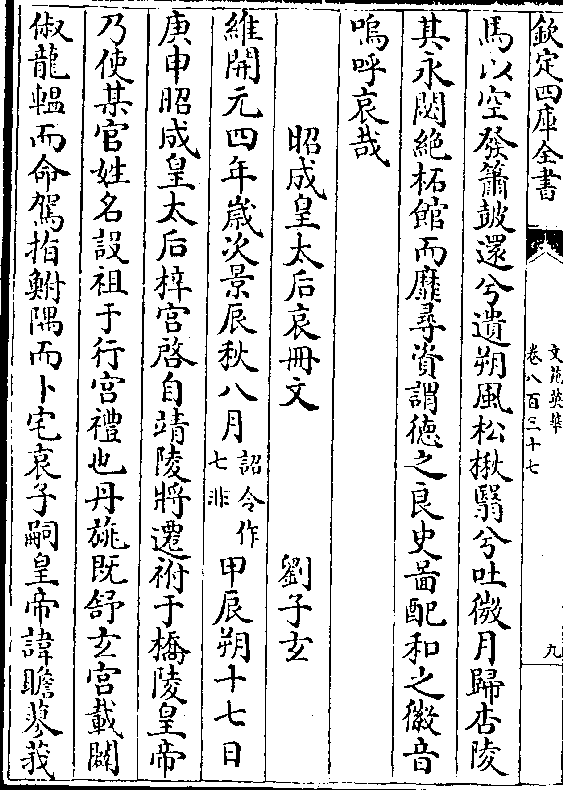 欽定四庫全書
文苑英華
卷八百三十七
九
馬以空發簫鼓還兮遺朔風松楸翳兮吐微月歸杏陵
其永閟絶柘館而靡尋資謂德之良史啚配和之徽音
嗚呼哀哉
昭成皇太后哀冊文 劉子玄
維開元四年歲次景辰秋八月詔令作七非甲辰朔十七日
庚申昭成皇太后梓宫啓自靖陵將遷祔于橋陵皇帝
乃使某官姓名設祖于行宫禮也丹旐既舒玄宫載闢
俶龍輼而命駕指鮒隅而卜宅哀子嗣皇帝諱瞻蓼莪